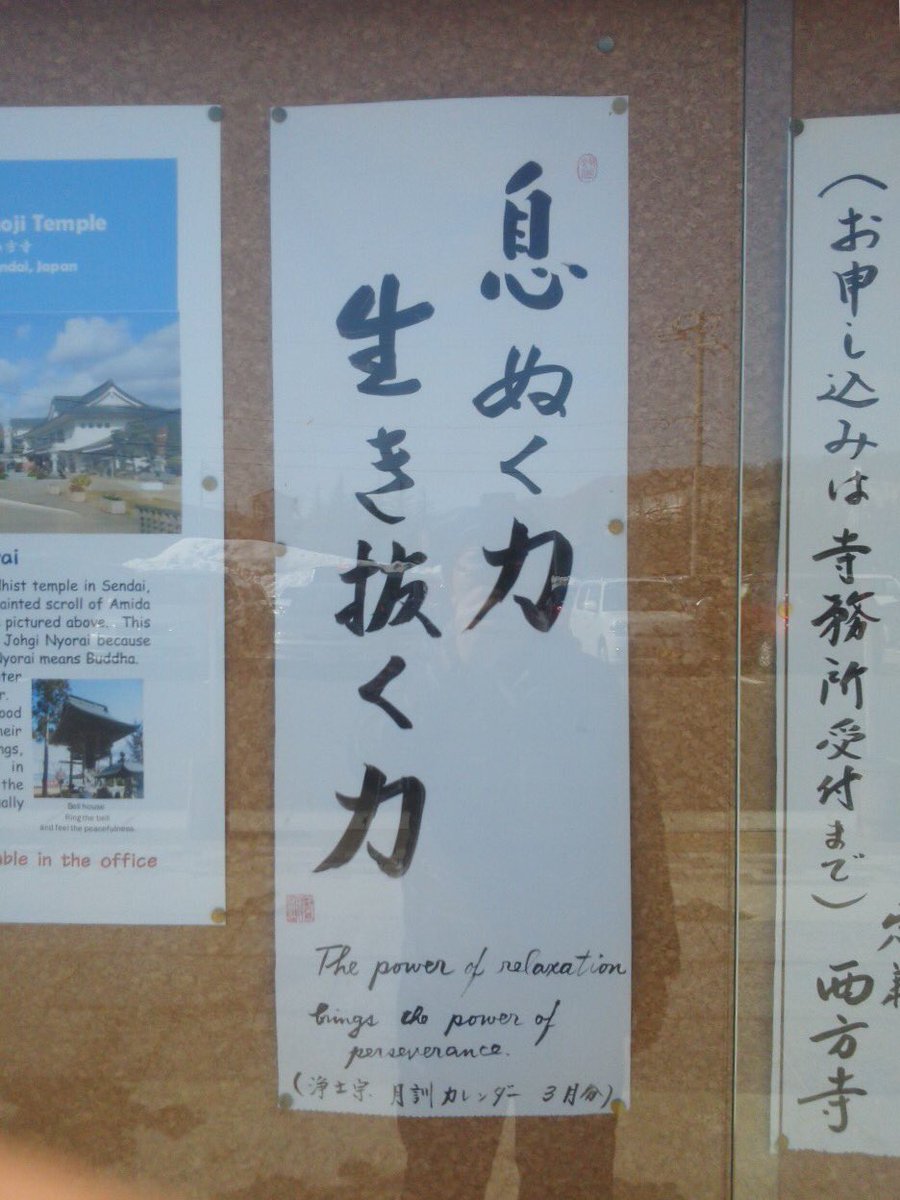 息ぬく力
生き抜く力
The power of relaxation
brings the power of
perseverance.
(浄土宗 月訓カレンダー 3月分)
(お申し込みは寺務所受付まで) 西方寺
oji Temple
ndai, Japan
rai
dhist temple in Sendai,
ainted scroll of Amida
pictured above. This
Johgi Nyorai because
Nyorai means Buddha.
ter
r.
oad
heir
ngs,
in
the
ually
Bell house
Ring the bell
and feel the peacefulness.
able in the office